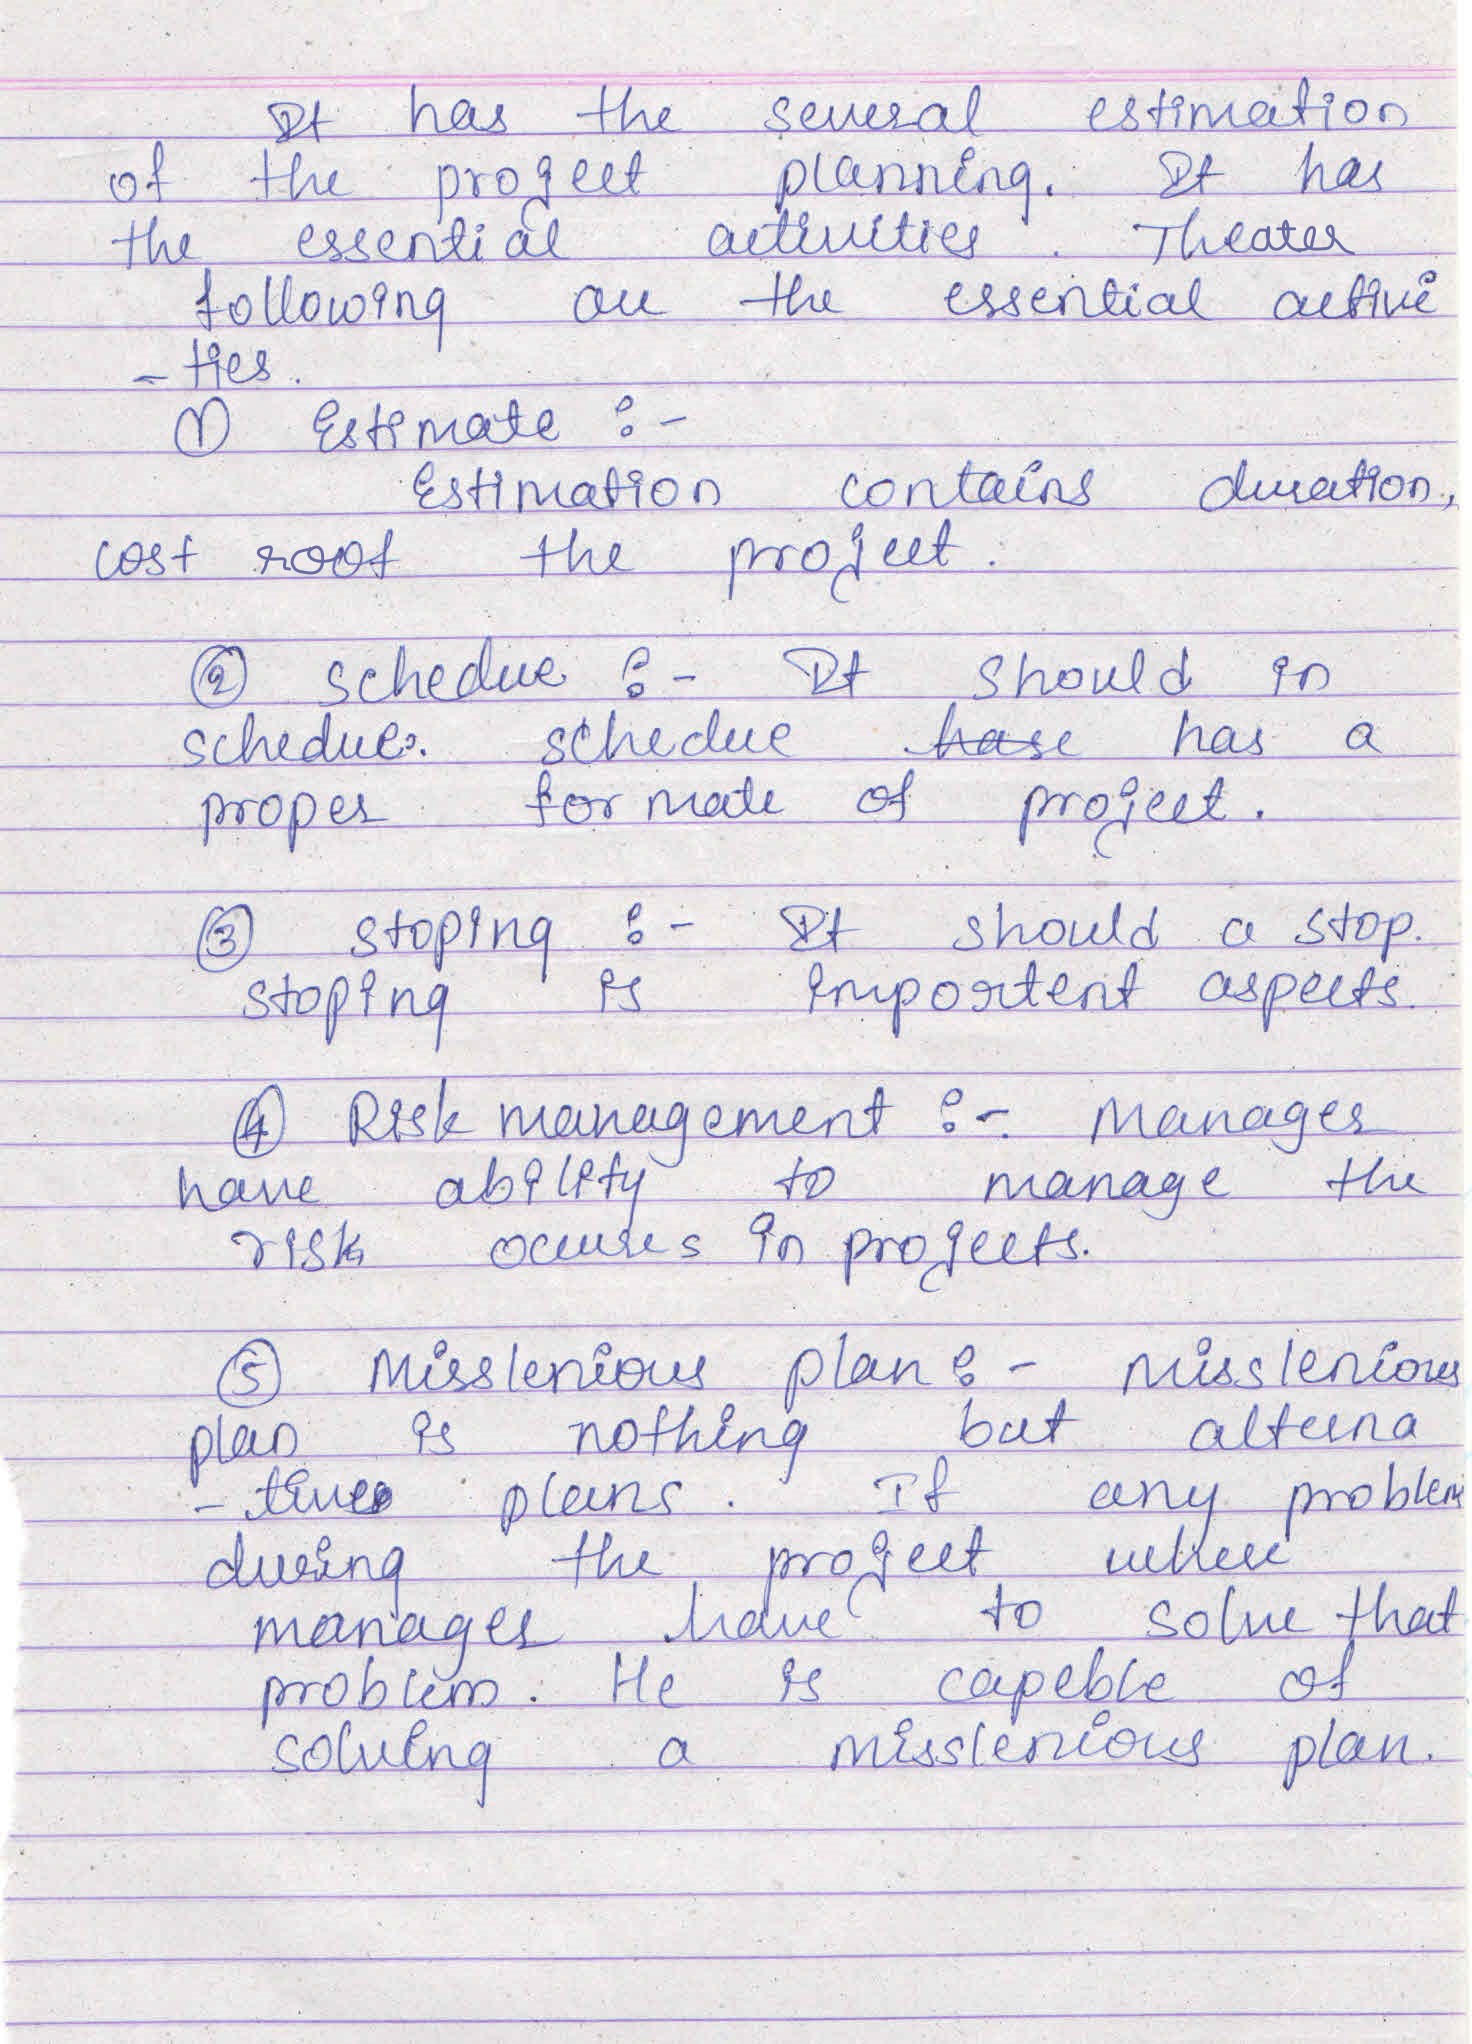 It has the several estimation
of the project planning. It has
the essential activities. Theater
following are the essential activi
- ties.
① Estimate :-
Estimation contains duration,
cost roof the project.
② schedue :- It should in
schedue. schedue hase has a
proper formate of project.
③ stoping :- It should a stop.
stoping is importent aspects.
④ Risk management :- Manager
have ability to manage the
risk occures in projects.
⑤ Misslenious plan :- misslenious
plan is nothing but alterna
- tive plans. If any problem
during the project where
manager have to solve that
problem. He is capeble of
solving a misslenious plan.